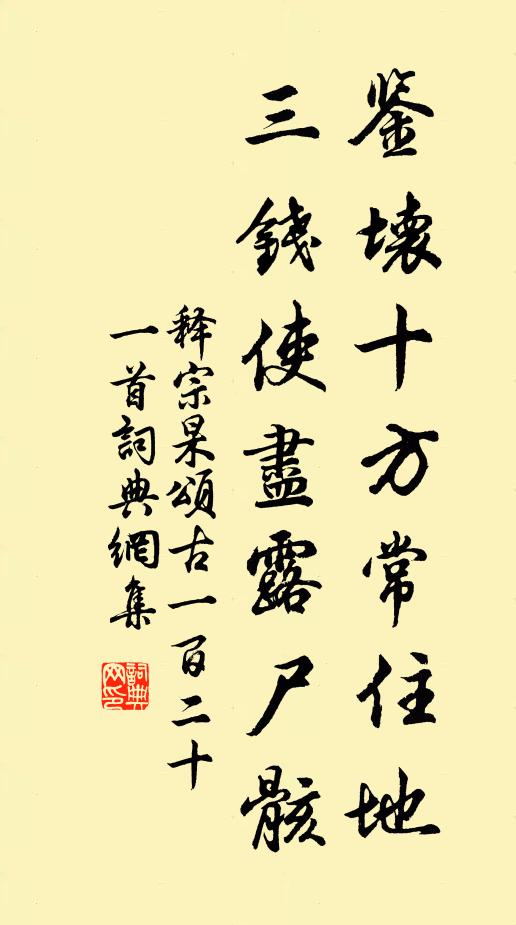 鉴壞十方常住地
三錢使盡露尸骸
释宗杲頌古一百二十
一首詞典網集
詞典網印